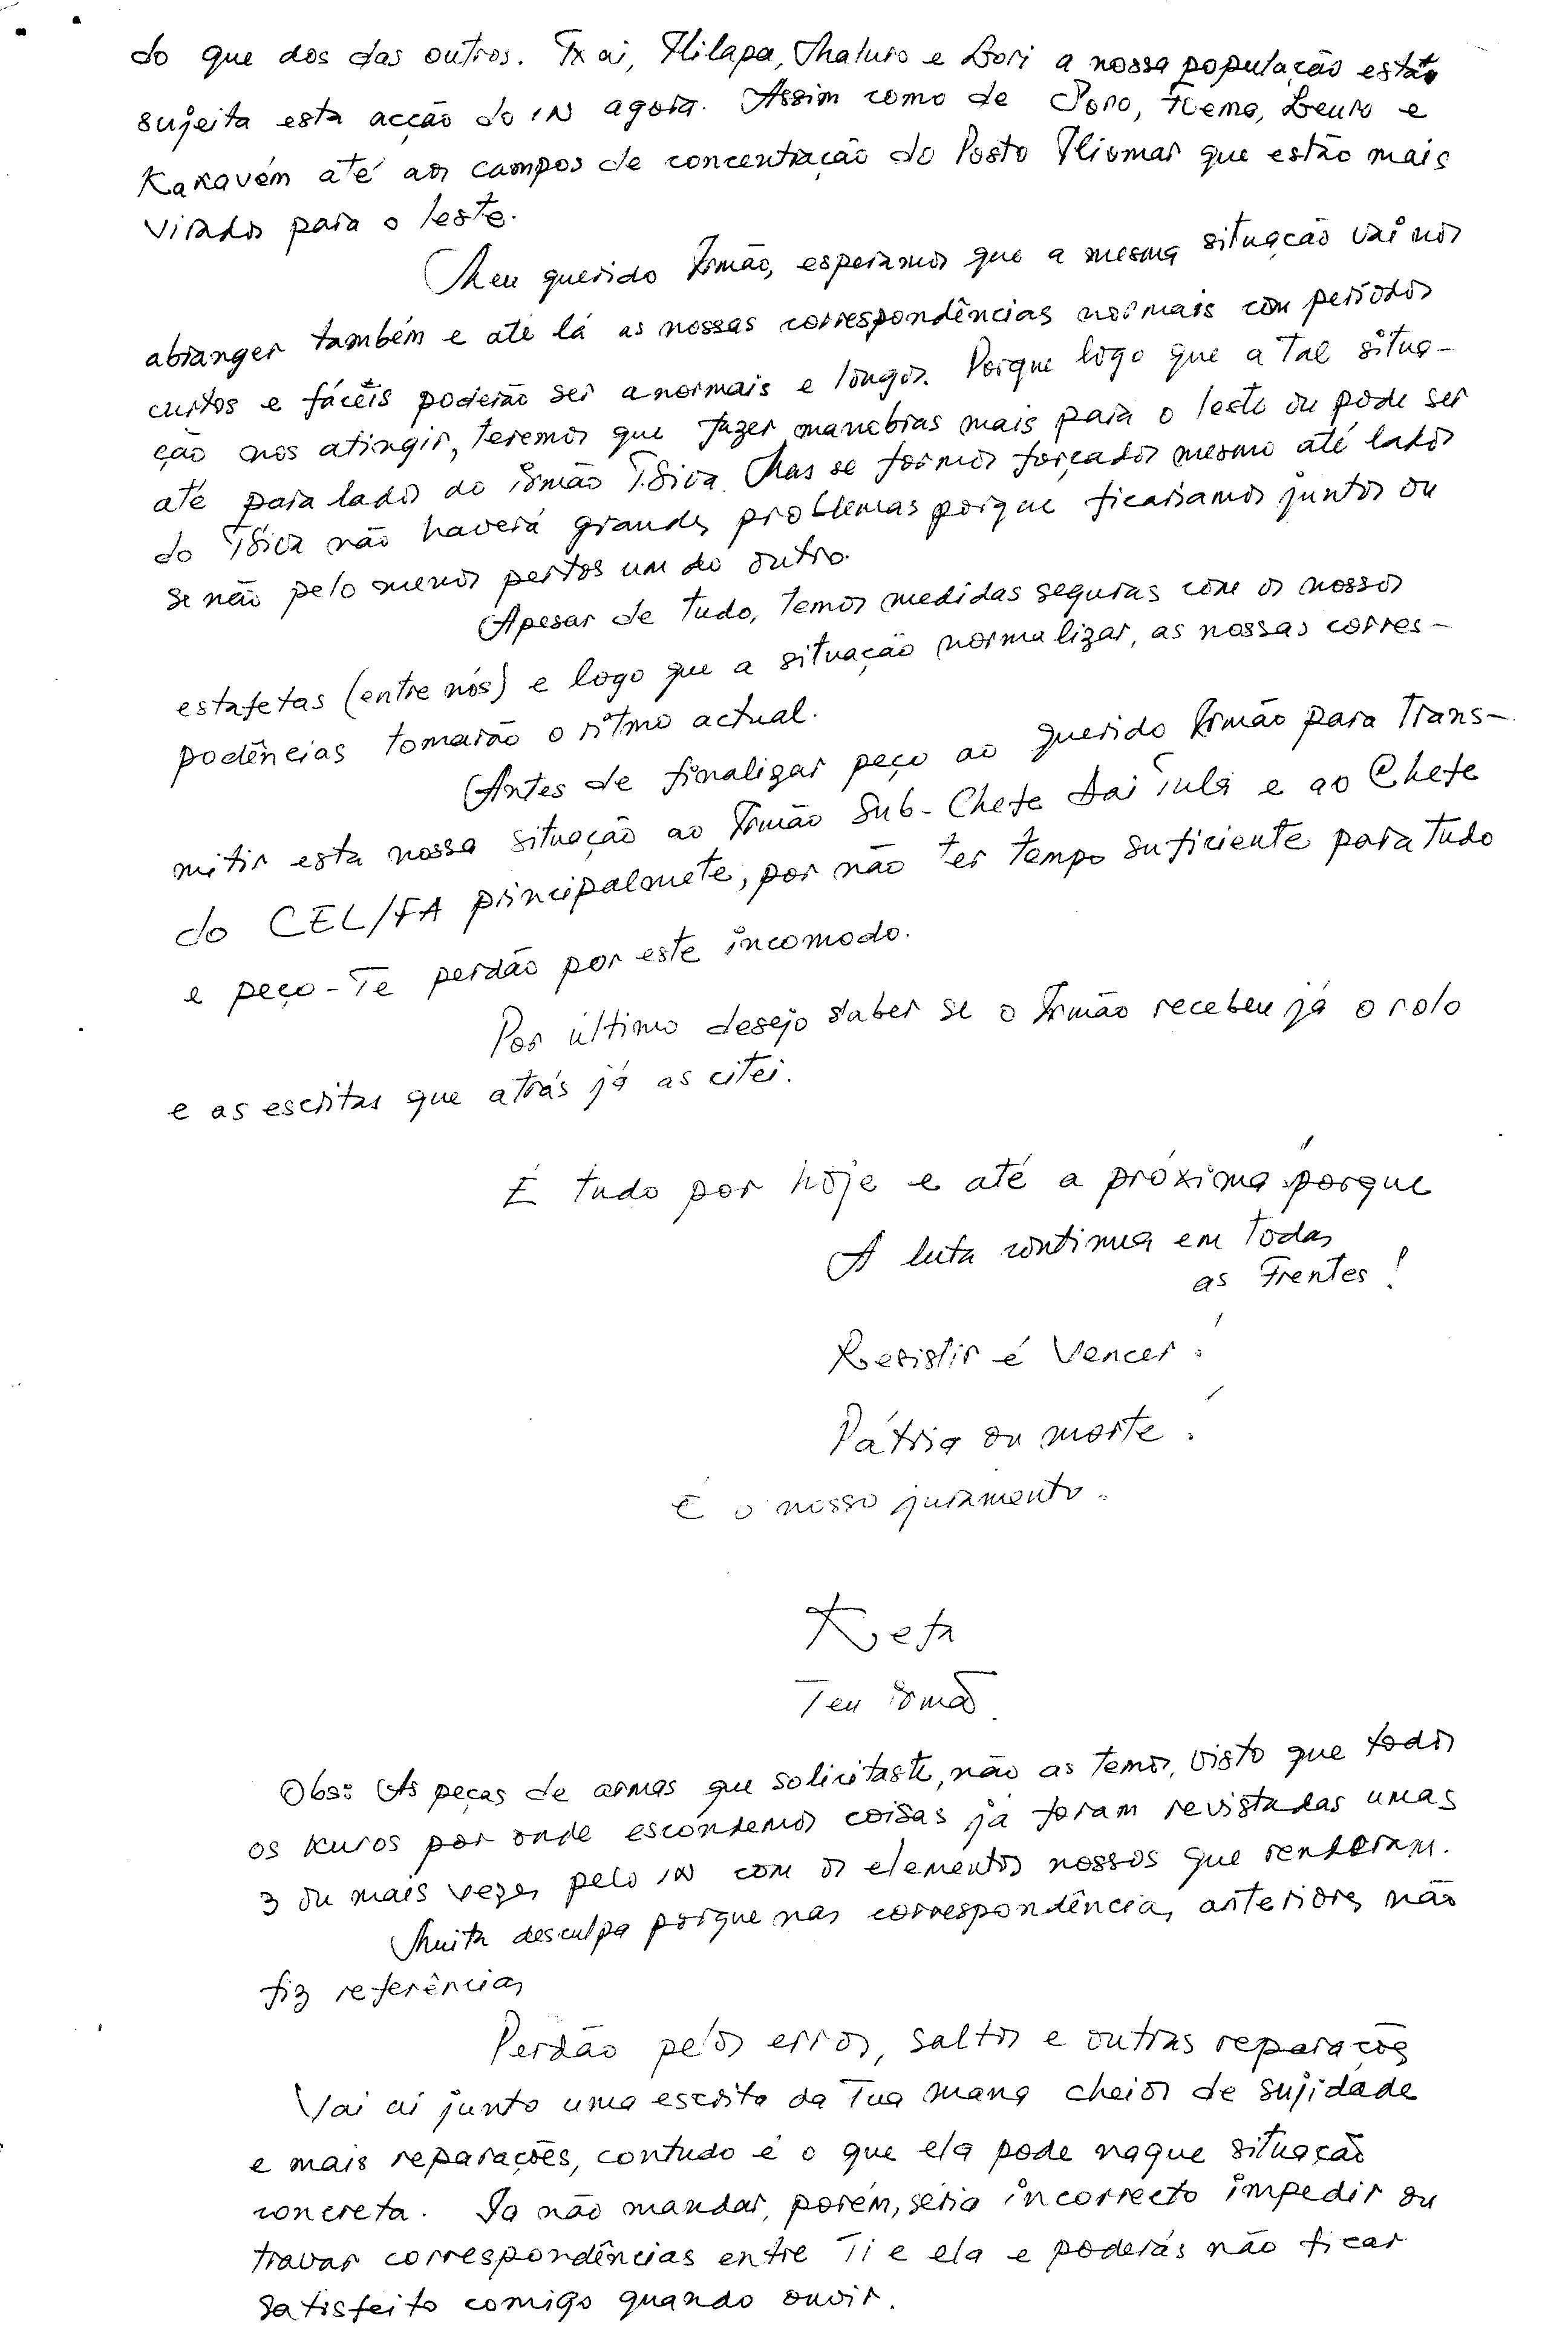 do que dos das outros. Txai, Ililapa, Maluro e Bori a nossa população está
sujeita esta acção do IN agora. Assim como de Poro, Irema, Leuro e
Kakavém até aos campos de concentração do Posto Iliomar que estão mais
virados para o leste.
Meu querido Irmão, esperamos que a mesma situação vai nos
abranger também e até lá as nossas correspondências normais com períodos
curtos e fáceis poderão ser anormais e longos. Porque logo que a tal situa-
ção nos atingir, teremos que fazer manobras mais para o leste ou pode ser
até para lados do irmão T.Siva. Mas se formos forçados mesmo até lados
do TSiva não haverá grandes problemas porque ficariamos juntos ou
se não pelo menos pertos um do outro.
Apesar de tudo, temos medidas seguras com os nossos
estafetas (entre nós) e logo que a situação normalizar, as nossas corres-
podências tomarão o ritmo actual.
Antes de finalizar peço ao querido Irmão para trans-
mitir esta nossa situação ao Irmão Sub-Chefe Lai Tula e ao Chefe
do CEL/FA principalmete, por não ter tempo suficiente para tudo
e peço-Te perdão por este incomodo.
Por último desejo saber se o Irmão recebeu já o rolo
e as escritas que atrás já as citei.
É tudo por hoje e até a próxima porque
A luta continua em todas
as Frentes!
Resistir é Vencer!
Pátria ou morte!
É o nosso juramento.
Keta
Teu irmão.
Obs: As peças de armas que solicitaste, não as temos, visto que todos
os kuros por onde escondemos coisas já foram revistadas umas
3 ou mais vezes pelo IN com os elementos nossos que renderam.
Muita desculpa porque nas correspondências anteriores não
fiz referências
Perdão pelos erros, saltos e outras reparações
Vai aí junto uma escrita da Tua mana cheios de sujidade
e mais reparações, contudo é o que ela pode naque situação
concreta. Ia não mandar, porém, seria incorrecto impedir ou
travar correspondências entre Ti e ela e poderás não ficar
satisfeito comigo quando ouvir.